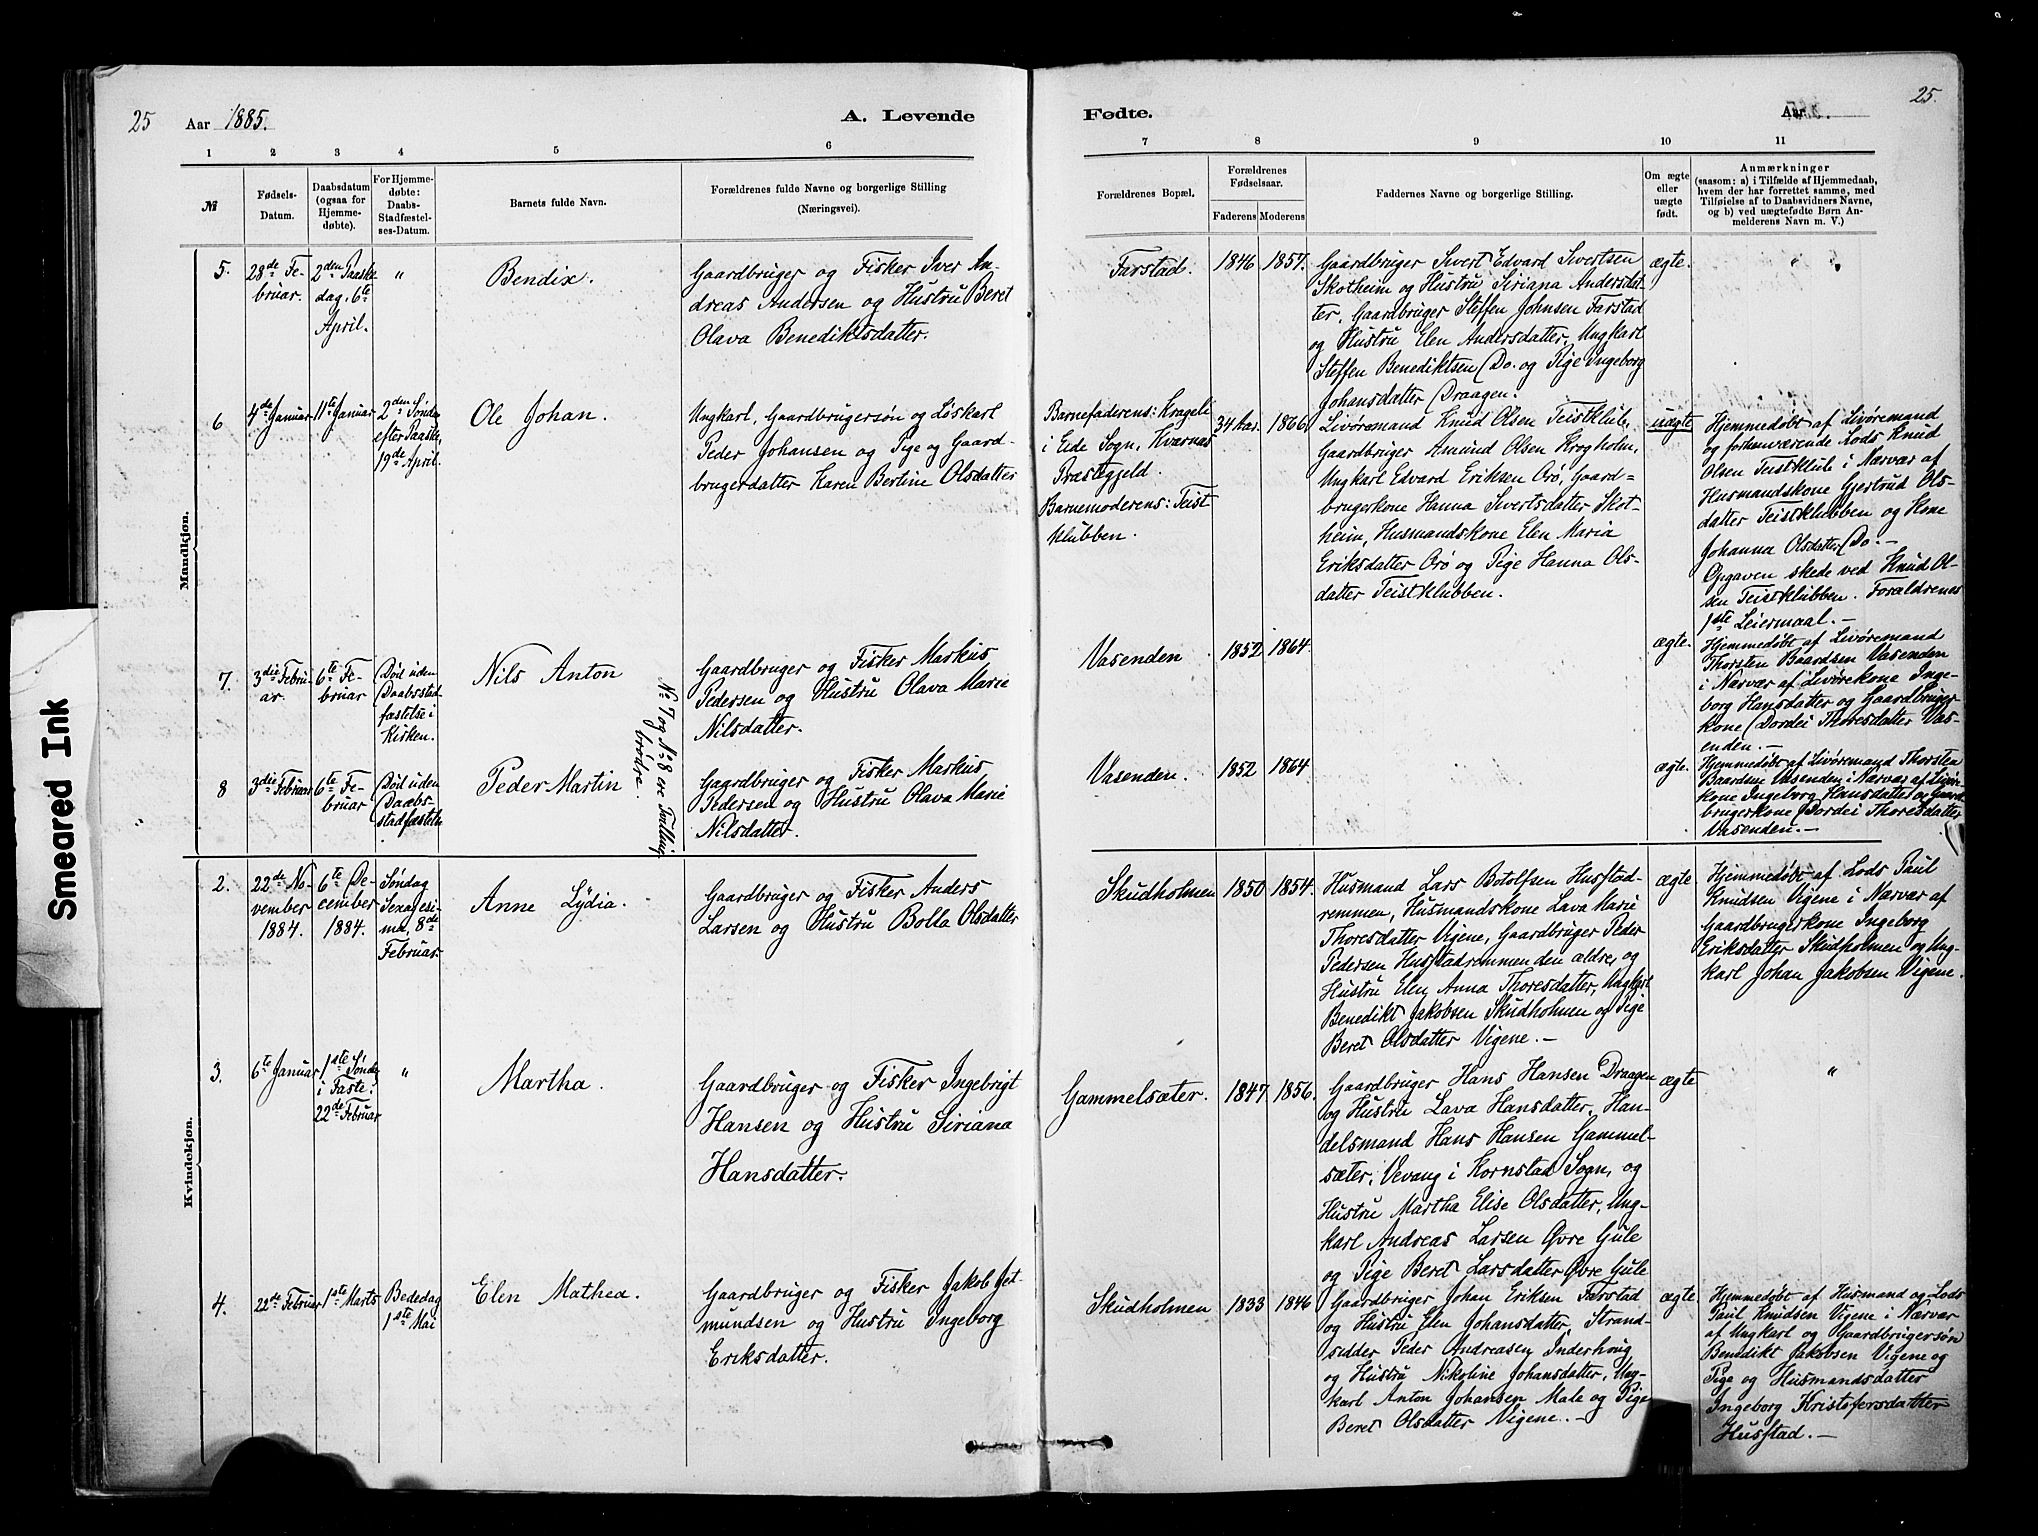 25 Aar 1885.
A. Levende
Fødte.
Aar
25.
1 2 3 4 5 6
7 8 9 10 11
№
Fødsels-
Datum.
Daabsdatum
(ogsaa for
Hjemme-
døbte).
For Hjemme-
døbte:
Daabs-
Stadfæstel-
ses-Datum.
Barnets fulde Navn.
Forældrenes fulde Navne og borgerlige Stilling
(Næringsvei).
Forældrenes Bopæl.
Forældrenes
Fødselsaar.
Faderens Moderens
Faddernes Navne og borgerlige Stilling.
Om ægte
eller
uægte
født.
Anmærkninger
(saasom: a) i Tilfælde af Hjemmedaab,
hvem der har forrettet samme, med
Tilføielse af to Daabsvidners Navne,
og b) ved uægtefødte Børn An-
melderens Navn m. V.)
Mandkjøn.
5.
28de Fe-
bruar.
2den Paaske
dag, 6te
April.
"
Bendix.
Gaardbruger og Fisker Iver An-
dreas Andersen og Hustru Beret
Olava Benediktsdatter.
Farstad.
1846 1857.
Gaardbruger Sivert Edvard Sivertsen
Skotheim og Hustru Siriana Andersdat-
ter, Gaardbruger Steffen Johnsen Farstad
og Hustru Elen Andersdatter, Ungkarl
Steffen Benediktsen Do. og Pige Ingeborg
Johansdatter Draagen.
ægte.
"
6
4de Januar
11te Januar
2den Søndag
efter Paaske,
19de April.
Ole Johan.
Ungkarl, Gaardbrugersøn og Løskarl
Peder Johansen og Pige og Gaard-
brugerdatter Karen Bertine Olsdatter
Barnefaderens: Krageli
i Eide Sogn, Kvernæs
Præstegjeld.
Barnemoderens: Teist
klubben.
34 Aar. 1866.
Livøremand Knud Olsen Teistklub,
Gaardbruger Amund Olsen Krogholm,
Ungkarl Edvard Eriksen Orø, Gaard-
brugerkone Hanna Sivertsdatter Skot-
heim, Husmandskone Elen Maria
Eriksdatter Orø og Pige Hanna Ols-
datter Teistklubben.
uægte
Hjemmedøbt af Livøremand
og forhenværende Lods Knud
Olsen Teistklub i Nærvær af
Husmandskone Gjertrud Ols-
datter Teistklubben og Kone
Johanna Olsdatter Do. —
Opgaven skede ved Knud Ol-
sen Teistklubben. Forældrenes
1ste Leiermaal. —
7.
3die Febru-
ar.
6te Fe-
bruar
Død uden
Daabsstad-
fæstelse i
Kirken.
Nils Anton
Gaardbruger og Fisker Markus
Pedersen og Hustru Olava Marie
Nilsdatter.
No 7 og No 8 ere Tvilling-
brødre.
Vasenden
1852 1864
ægte.
Hjemmedøbt af Livøremand
Thorsten Baardsen Vasenden
i Nærvær af Livørekone Inge-
borg Hansdatter og Gaardbruger
kone Dordei Thoresdatter Vas-
enden. —
8
3die Februar
6te Fe-
bruar
Død uden
Daabs-
stadfæstelse
Peder Martin
Gaardbruger og Fisker Markus
Pedersen og Hustru Olava Marie
Nilsdatter.
Vasenden.
1852 1864
ægte.
Hjemmedøbt af Livøremand Thorsten
Baardsen Vasenden i Nærvær af Livøre-
kone Ingeborg Hansdatter og Gaard-
brugerkone Dordei Thoresdatter
Vasenden. —
Kvindekjøn.
2.
22de No-
vember
1884.
6te De-
cember
1884.
Søndag
Sexagesi-
ma, 8de
Februar.
Anne Lydia.
Gaardbruger og Fisker Anders
Larsen og Hustru Bolla Olsdatter
Skudholmen
1850 1854.
Husmand Lars Botolfsen Hustad-
remmen, Husmandskone Lava Marie
Thoresdatter Vigene, Gaardbruger Peder
Pedersen Hustadremmen den ældre, og
Hustru Elen Anna Thoresdatter, Ungkarl
Benedikt Jakobsen Skudholmen og Pige
Beret Olsdatter Vigene. —
ægte
Hjemmedøbt af Lods Paul
Knudsen Vigene i Nærvær af
Gaardbrugerkone Ingeborg
Eriksdatter Skudholmen og Ung-
karl Johan Jakobsen Vigene.
3.
6te Januar
1ste Søndag
i Faste,
22de Februar
"
Martha.
Gaardbruger og Fisker Ingebrigt
Hansen og Hustru Siriana
Hansdatter.
Gammelsæter.
1847 1856.
Gaardbruger Hans Hansen Draagen
og Hustru Lava Hansdatter, Han-
delsmand Hans Hansen Gammel-
sæter, Vevang i Kornstad Sogn, og
Hustru Martha Elise Olsdatter, Ung-
karl Andreas Larsen Øvre Gule
og Pige Beret Larsdatter Øvre Gule
ægte
"
4.
22de Februar
1ste Marts
Bededag
1ste Mai
Elen Mathea.
Gaardbruger og Fisker Jakob Jet-
mundsen og Hustru Ingeborg
Eriksdatter.
Skudholmen
1833 1846
Gaardbruger Johan Eriksen Farstad
og Hustru Elen Johansdatter, Strand-
sidder Peder Andreasen Inderhoug
og Hustru Nikoline Johansdatter, Ung-
karl Anton Johansen Male og Pige
Beret Olsdatter Vigene. —
ægte.
Hjemmedøbt af Husmand og Lods
Paul Knudsen Vigene i Nærvær
af Ungkarl og Gaardbrugersøn
Benedikt Jakobsen Vigene og
Pige og Husmandsdatter
Ingeborg Kristofersdatter
Hustad. —
Smeared Ink